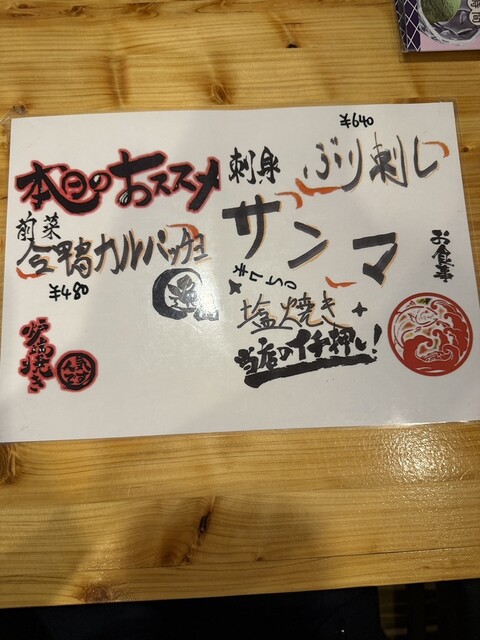 本日のおススメ
前菜
合鴨カルパッチョ
¥480
炉端焼き
人気です
刺身
¥640
ぶり刺し
サンマ
¥750
塩焼き
当店のイチ押し!
お食事